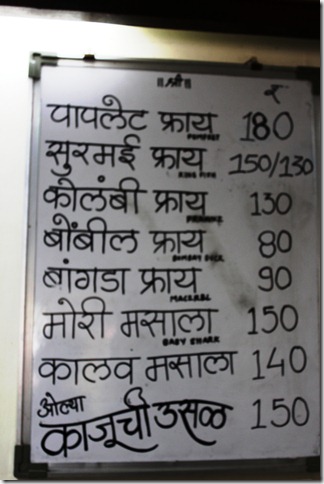 ॥श्री॥
₹
पापलेट फ्राय 180
POMFRET
सुरमई फ्राय 150/130
KING FISH
कोलंबी फ्राय 130
बोंबील फ्राय 80
BOMBAY DUCK
बांगडा फ्राय 90
MACKREL
मोरी मसाला 150
BABY SHARK
कालवं मसाला 140
ओल्या
काजूची उसळ 150